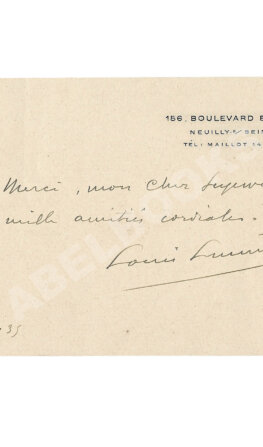 156, BOULEVARD B
NEUILLY-S/ SEIN
TÉL: MAILLOT 14
Merci, mon cher
mille amitiés cordiales.
Louis
35
ABELBOOKS